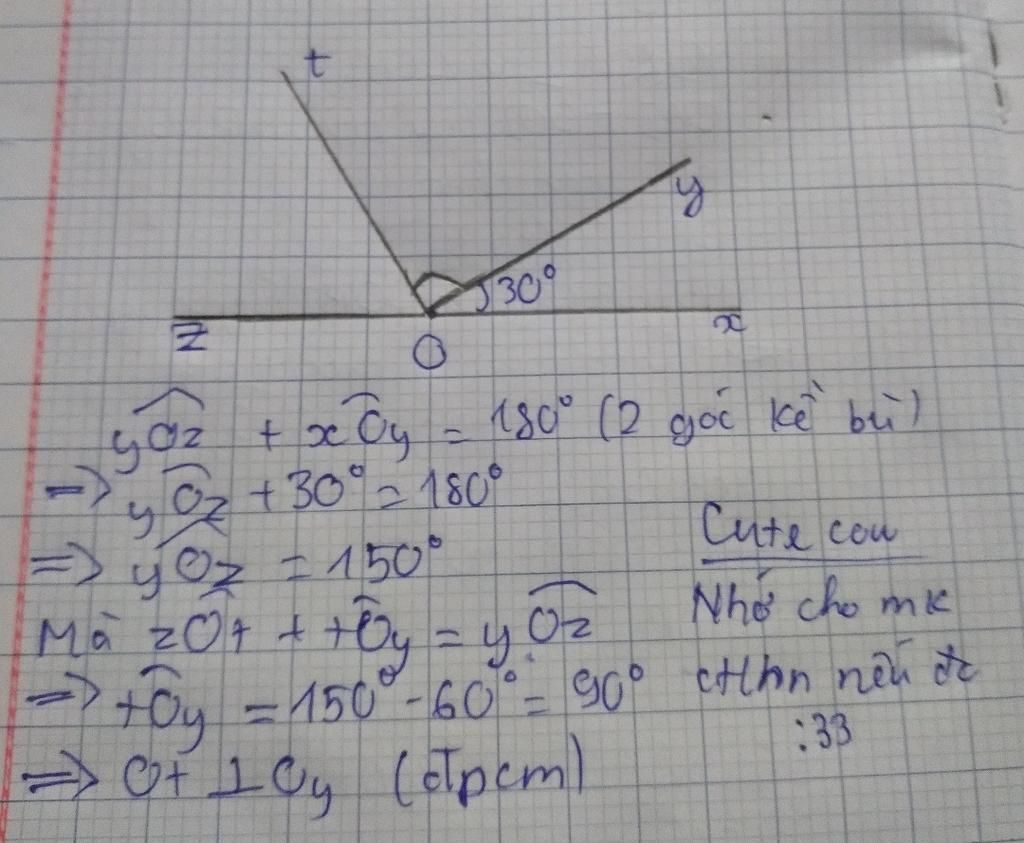 t
y
30°
z
x
O
yOz + xOy = 180° (2 góc kề bù)
=> yOz + 30° = 180°
=> yOz = 150°
Mà zOt + tOy = yOz
=> tOy = 150° - 60° = 90°
=> Ot ⊥ Oy (đpcm)
Cute cou
Nhớ cho mk
ctlhn nếu đc
:33